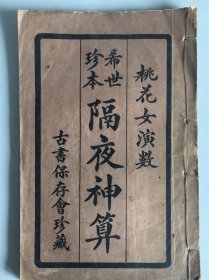 桃花女演數
希世珍本
隔夜神算
古書保存會珍藏